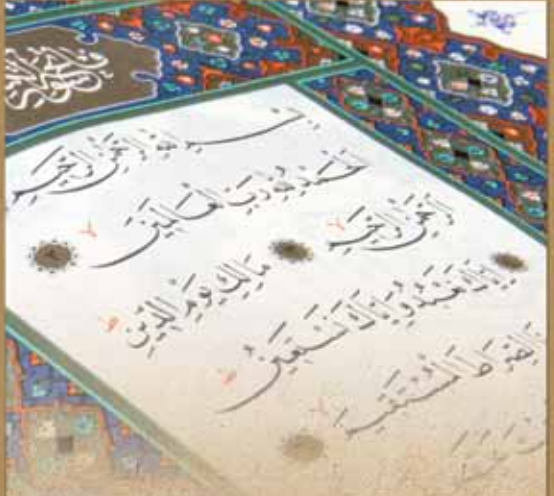 بِسْمِ اللهِ الرَّحْمٰنِ الرَّحِيمِ
الْحَمْدُ لِلّٰهِ رَبِّ الْعَالَمِينَ
الرَّحْمٰنِ الرَّحِيمِ
مَالِكِ يَوْمِ الدِّينِ
إِيَّاكَ نَعْبُدُ وَإِيَّاكَ نَسْتَعِينُ
الصِّرَاطَ الْمُسْتَقِيمَ